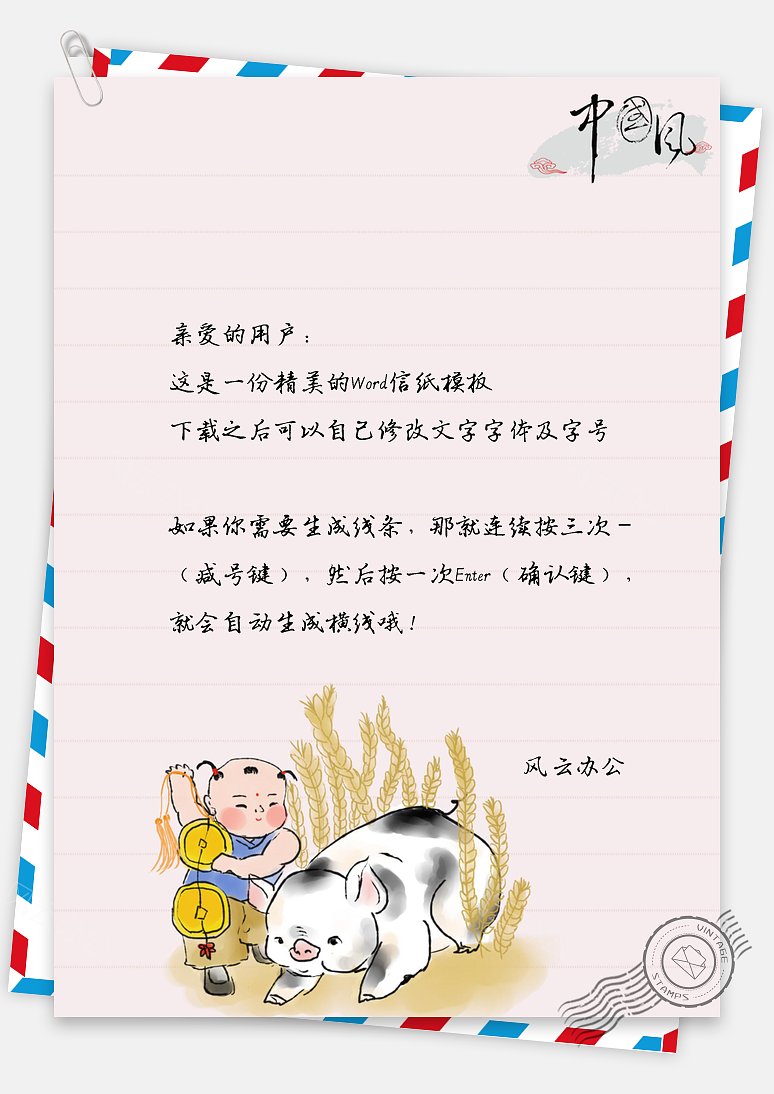 中国风
亲爱的用户：
这是一份精美的Word信纸模板
下载之后可以自己修改文字字体及字号
如果你需要生成线条，那就连续按三次－
（减号键），然后按一次Enter（确认键），
就会自动生成横线哦！
风云办公
VINTAGE
STAMPS